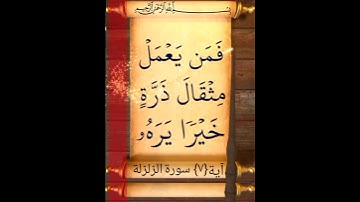 بسم الله الرحمن الرحيم
فَمَن يَعْمَلْ
مِثْقَالَ ذَرَّةٍ
خَيْرًا يَرَهُۥ
آية{٧} سورة الزلزلة